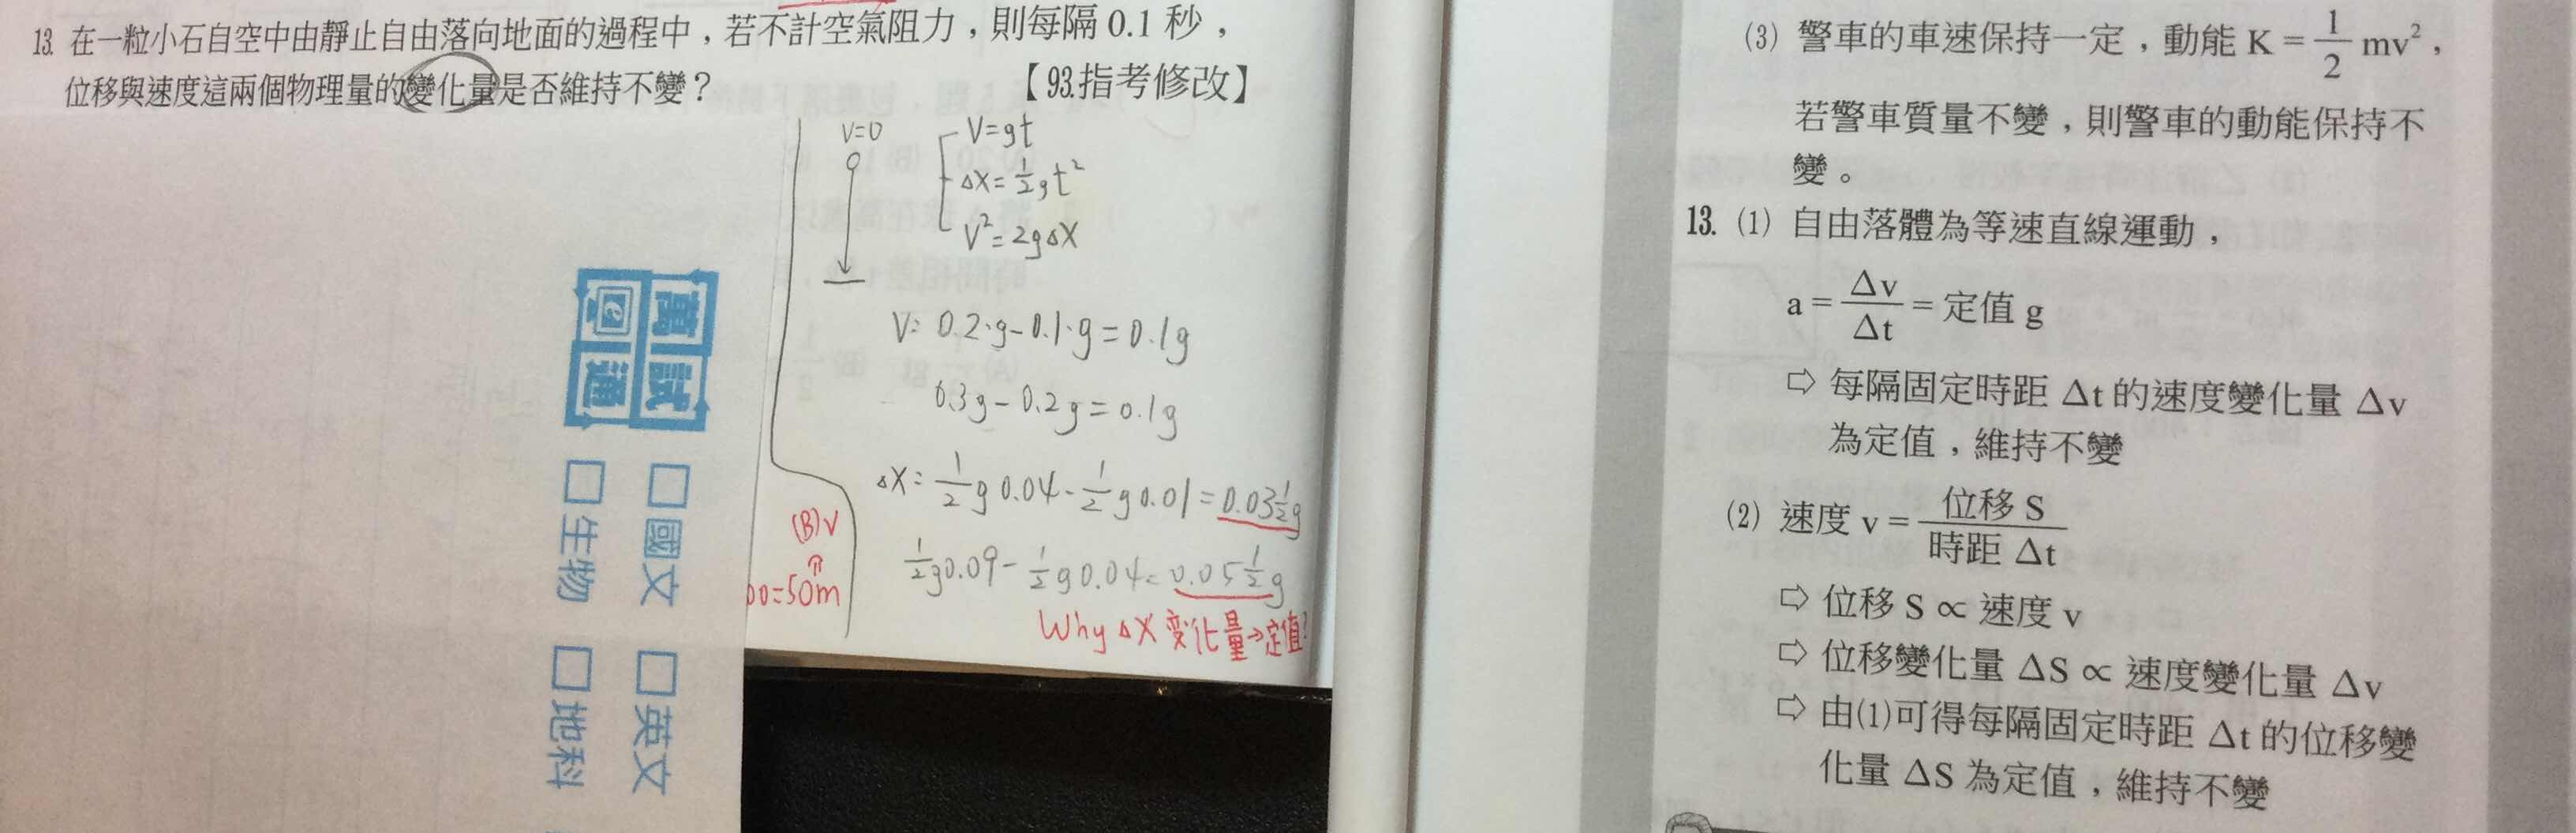 13. 在一粒小石自空中由靜止自由落向地面的過程中，若不計空氣阻力，則每隔 0.1 秒，
位移與速度這兩個物理量的變化量是否維持不變？
【93.指考修改】
V=0
V=gt
ΔX=½gt²
V²=2gΔX
V: 0.2·g-0.1·g=0.1g
0.3g-0.2g=0.1g
ΔX: ½g0.04-½g0.01=0.03½g
½g0.09-½g0.04=0.05½g
Why ΔX 变化量→定值?
(B)V
00=50m
萬試
e通
□國文 □英文
□生物 □地科
(3) 警車的車速保持一定，動能 K = 1/2 mv²，
若警車質量不變，則警車的動能保持不
變。
13. (1) 自由落體為等速直線運動，
a = Δv/Δt = 定值 g
⇨ 每隔固定時距 Δt 的速度變化量 Δv
為定值，維持不變
(2) 速度 v = 位移 S/時距 Δt
⇨ 位移 S ∝ 速度 v
⇨ 位移變化量 ΔS ∝ 速度變化量 Δv
⇨ 由(1)可得每隔固定時距 Δt 的位移變
化量 ΔS 為定值，維持不變